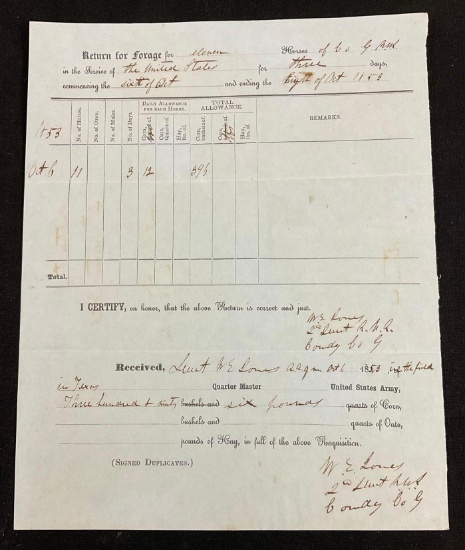 Return for Forage for eleven Horses of Co G R.M.R
in the Service of the United States for three days,
commencing the sixt of Oct and ending the Eight of Oct 1853
No. of Horses. No. of Oxen. No. of Mules. No. of Days. DAILY ALLOWANCE FOR EACH HORSE. TOTAL ALLOWANCE. REMARKS.
Corn, Oats, Hay, lbs. of. Corn, Oats, Hay, lbs. of.
1853
Oct 6 11 3 12 396
Total.
I CERTIFY, on honor, that the above Return is correct and just.
W. E. Jones
2nd Lieut R.M.R.
Comdg Co G
Received, Lieut W E Jones A.A.Q.M. Oct 6 1853 in the field
in Texas Quarter Master United States Army,
Three hundred & ninty bushels and six pounds quarts of Corn,
bushels and quarts of Oats,
pounds of Hay, in full of the above Requisition.
(SIGNED DUPLICATES.)
W. E. Jones
2nd Lieut R.M.R
Comdg Co G